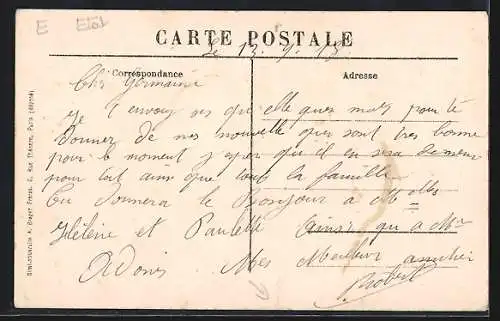 E Etat
CARTE POSTALE
Le 13. 9. 15
Correspondance
Adresse
Chère Germaine
Je t envoy ses qu elle ques mots pour te
donner de nos nouvelle qui sont tres bonne
pour le moment j esper qu il en sera de meme
pour toi ainsi que toute la famille
Tu donnera le Bonjour a Melles
Hélène et Paulette ainsi qu a Mr
Adonis Mes Meilleur amitiés
Robert